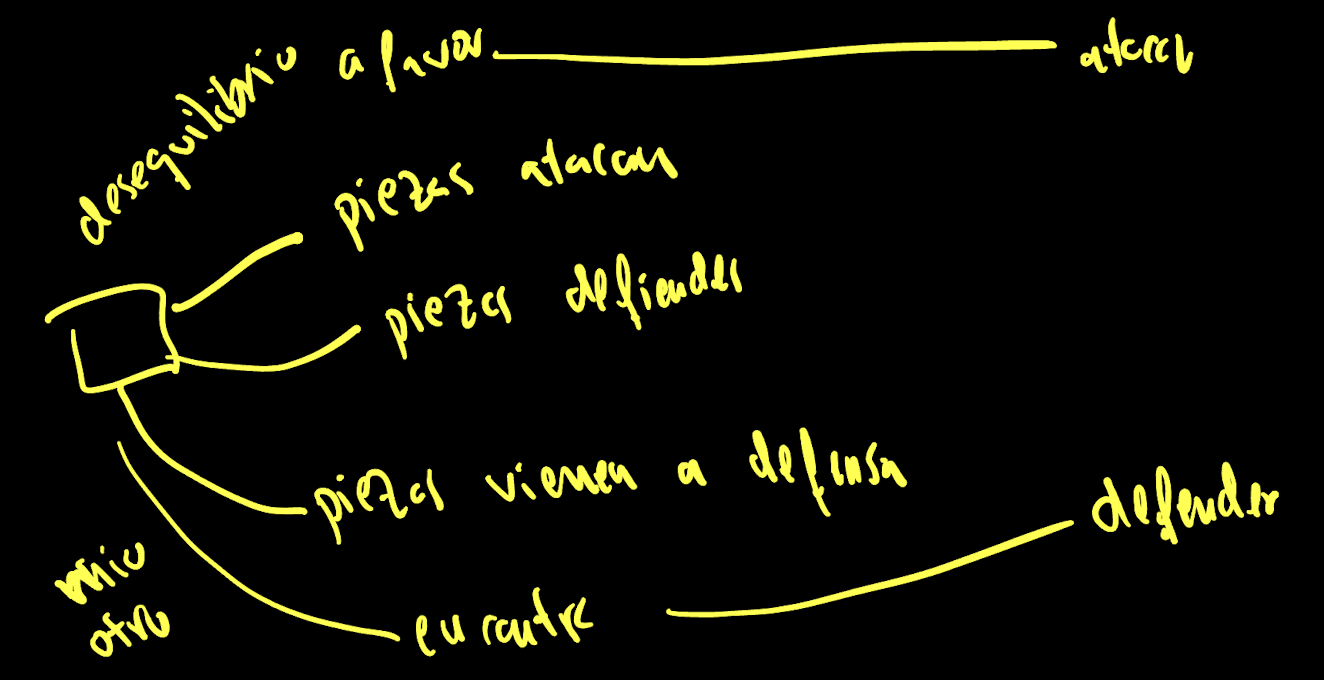 desequilibrio a favor atacar
piezas atacan
piezas defienden
piezas vienen a defensa
defender
mio
otro
en contra